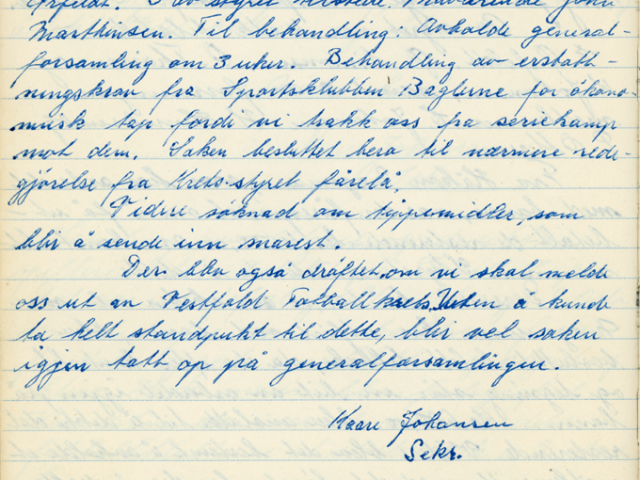 Marthinsen. Til behandling: Avholde general-
forsamling om 3 uker. Behandling av erstatt-
ningskrav fra Sportsklubben Baglerne for økono-
misk tap fordi vi trakk oss fra seriekamp
mot dem. Saken besluttet bero til nærmere rede-
gjørelse fra Krets-styret forelå.
Videre søknad om tippemidler, som
blir å sende inn snarest.
Der blev også drøftet om vi skal melde
oss ut av Vestfold Fotballkrets. Uten å kunde
ta helt standpukt til dette, blir vel saken
igjen tatt op på generalforsamlingen.
Kaare Johansen
Sekr.